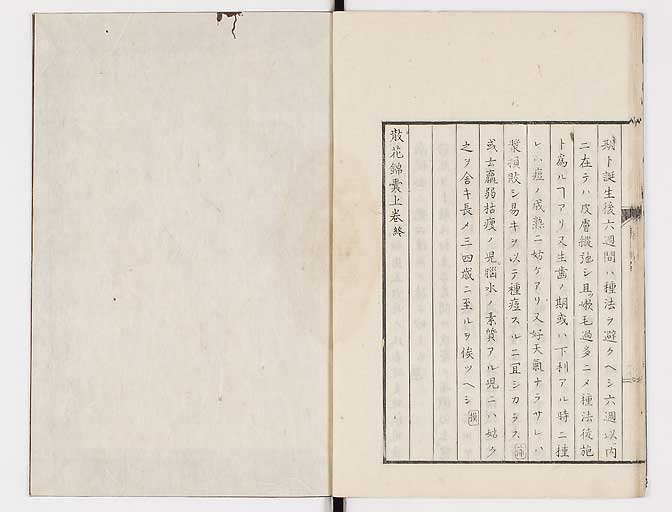 現ト誕生後六週間ハ種法ヲ避クヘシ六週以内
ニ在テハ皮膚緩弛シ且ツ嫩毛過多ニメ種法後施
ト為ルヿアリ又生歯ノ期或ハ下利アル時ニ種
レハ痘ノ成熟ニ妨ケアリ又好天氣ナラサレハ
漿損敗シ易キヲ以テ種痘スルニ宜シカラス
或云羸弱枯瘦ノ児腦水ノ素質アル児ニハ姑ク
之ヲ舎キ長メ三四歳ニ至ルヲ俟ツヘシ
散花錦囊上巻終